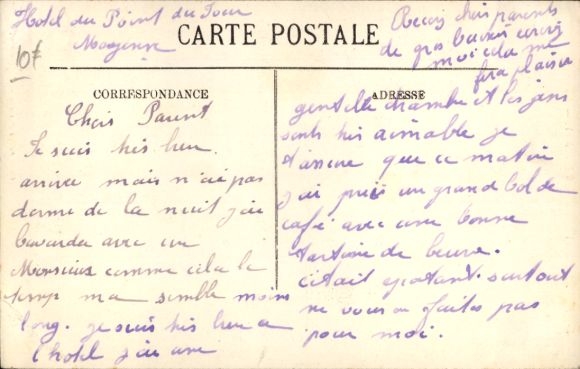 Hotel du Point du Jour
Mayenne
10f
CARTE POSTALE
Recevez chers parents
de gros baisers
moi cela me
fera plaisir
CORRESPONDANCE
Chers Parent
Je suis très bien
arrivée mais n'ai pas
dormé de la nuit j'ai
bavarda avec un
Monsieur comme cela le
temp ma semble moins
long. je suis très bien a
l'hotel j'ai une
ADRESSE
gentille chambre et les gens
sont très aimable je
t'assure que ce matin
j'ai pris un grand bol de
café avec une bonne
tartine de beure.
c'était epatant. surtout
ne vous en faites pas
pour moi.